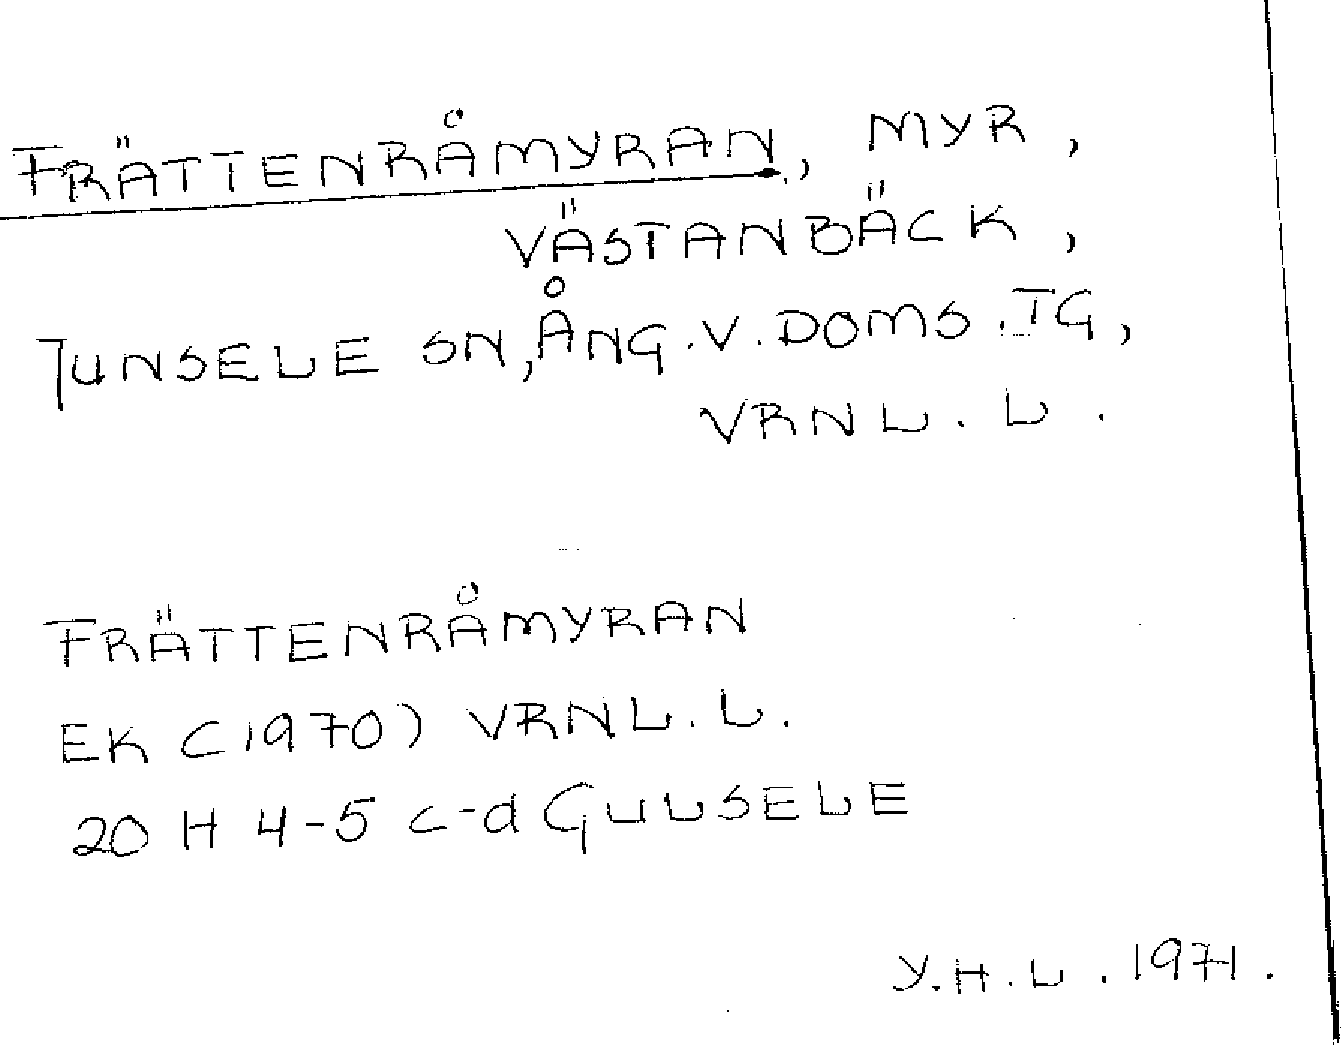 FRÄTTENRÅMYRAN, MYR,
VÄSTANBÄCK,
JUNSELE SN, ÅNG.V.DOMS.TG,
VRNL.L.
FRÄTTENRÅMYRAN
EK (1970) VRNL.L.
20 H 4-5 c-d GULSELE
Y.H.L. 1971.